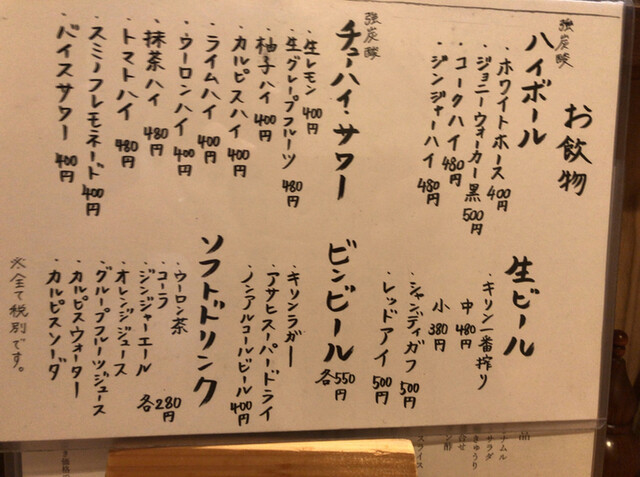 お飲物
強炭酸
ハイボール
・ホワイトホース 400円
・ジョニーウォーカー黒 500円
・コークハイ 480円
・ジンジャーハイ 480円
強炭酸
チューハイ・サワー
・生レモン 400円
・生グレープフルーツ 480円
・柚子ハイ 400円
・カルピスハイ 400円
・ライムハイ 400円
・ウーロンハイ 400円
・抹茶ハイ 480円
・トマトハイ 480円
・スミノフレモネード 400円
・バイスサワー 400円
生ビール
・キリン一番搾り
中 480円
小 380円
・シャンディガフ 500円
・レッドアイ 500円
ビンビール 各550円
・キリンラガー
・アサヒスーパードライ
・ノンアルコールビール 400円
ソフトドリンク
・ウーロン茶
・コーラ
・ジンジャーエール 各280円
・オレンジジュース
・グレープフルーツジュース
・カルピスウォーター
・カルピスソーダ
※全て税別です。
品
ナムル
サラダ
きゅうり
スライス